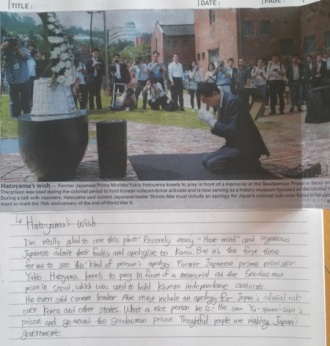 TITLE :
DATE :
PAGE :
Hatoyama's wish — Former Japanese Prime Minister Yukio Hatoyama kneels to pray in front of a memorial at the Seodaemun Prison in Seoul on
The prison was used during the colonial period to hold Korean independence activists and is now serving as a history museum
During a talk with reporters, Hatoyama said current Japanese leader Shinzo Abe must include an apology for Japan's colonial rule over Korea in his
ment to mark the 70th anniversary of the end of World War II.
Hatoyama's wish
I'm really glad to see this photo. Recently many and
Japanese admit their faults and apologize to Korea. But it's the first time
for me to see this kind of person's apology. Former Japanese prime minister
Yukio Hatoyama kneels to pray in front of a memorial at the Seodaemun
prison in Seoul, which was used to hold Korean independence activists.
He even said current leader Abe must include an apology for Japan's colonial rule
over Korea and other states. What a nice person he is! He saw Yu
prison and go around the Seodaemun prison. Thoughtful people are making Japan's
government.